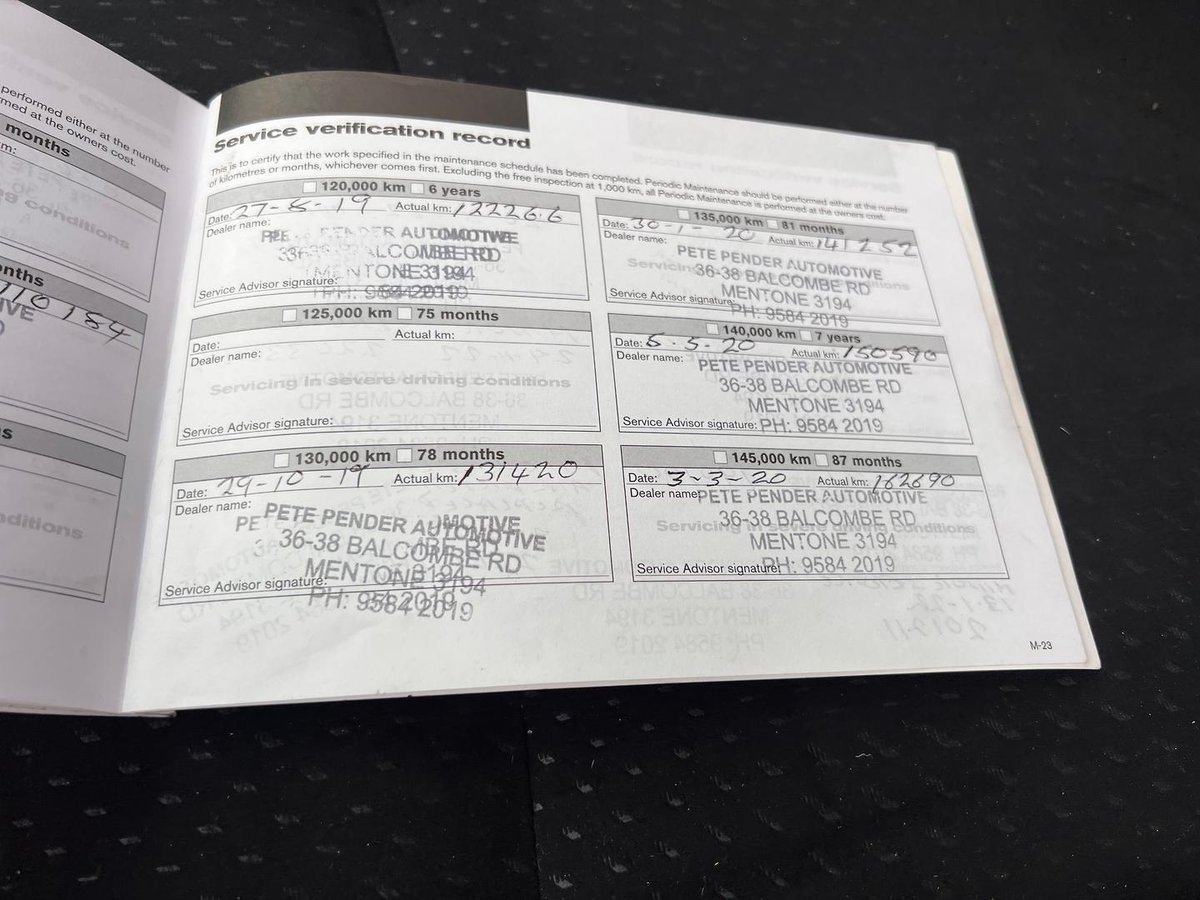 performed either at the number
med at the owners cost.
months
m:
ng conditions
nths
110184
IVE
D
s
nditions
Service verification record
This is to certify that the work specified in the maintenance schedule has been completed. Periodic Maintenance should be performed either at the number
of kilometres or months, whichever comes first. Excluding the free inspection at 1,000 km, all Periodic Maintenance is performed at the owners cost.
120,000 km 6 years
Date: 27-5-19 Actual km: 122266
Dealer name:
PENDER AUTOMOTIVE
BALCOMBE RD
MENTONE 3194
Service Advisor signature:
PH: 9584 2019
125,000 km 75 months
Date: Actual km:
Dealer name:
Servicing in severe driving conditions
Service Advisor signature:
130,000 km 78 months
Date: 29-10-19 Actual km: 131420
Dealer name:
PETE PENDER AUTOMOTIVE
36-38 BALCOMBE RD
MENTONE 3194
Service Advisor signature:
PH: 9584 2019
135,000 km 81 months
Date: 30-1-20 Actual km: 141252
Dealer name:
PETE PENDER AUTOMOTIVE
Servicing
36-38 BALCOMBE RD
MENTONE 3194
Service Advisor signature:
PH: 9584 2019
140,000 km 7 years
Date: 5.5.20 Actual km: 150590
Dealer name:
PETE PENDER AUTOMOTIVE
36-38 BALCOMBE RD
MENTONE 3194
Service Advisor signature: PH: 9584 2019
145,000 km 87 months
Date: 3-3-20 Actual km: 162690
Dealer name: PETE PENDER AUTOMOTIVE
36-38 BALCOMBE RD
Servicing in severe driving conditions
MENTONE 3194
Service Advisor signature: PH: 9584 2019
M-23